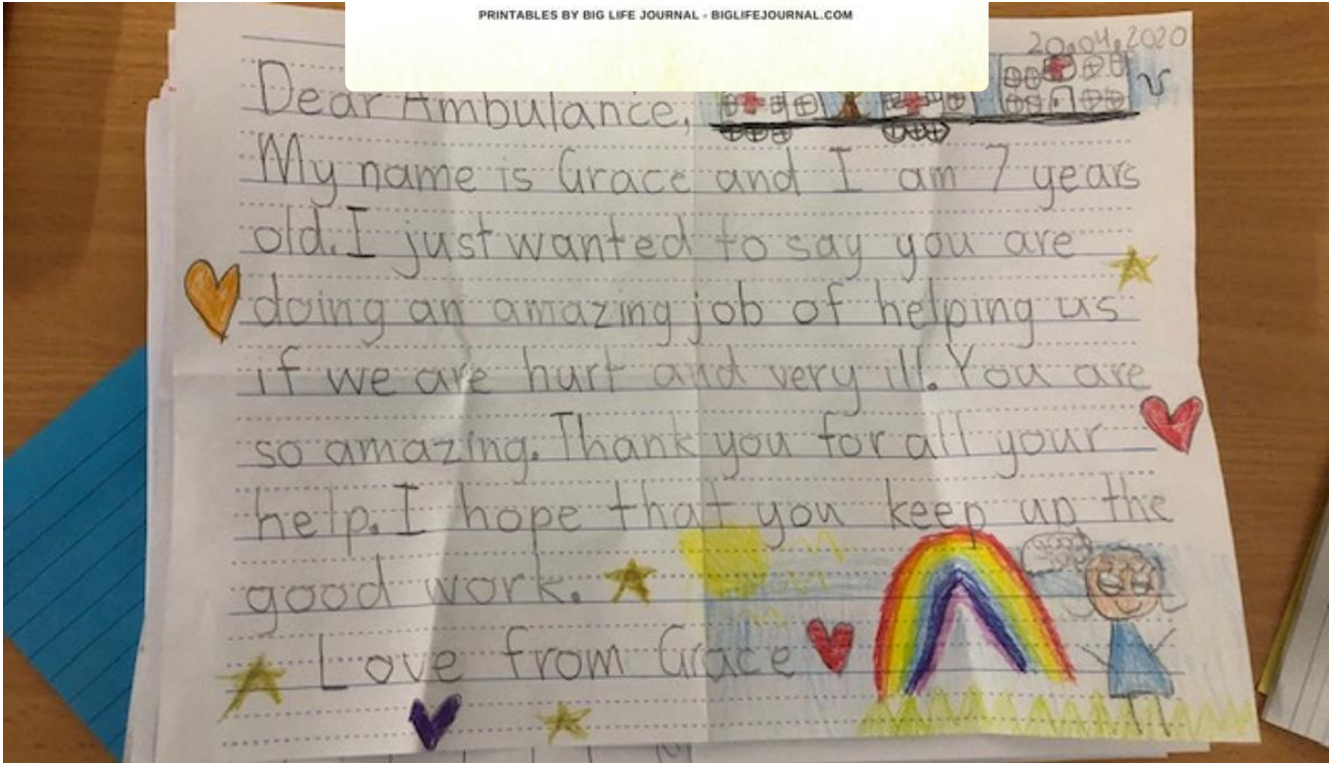 PRINTABLES BY BIG LIFE JOURNAL - BIGLIFEJOURNAL.COM
20.04.2020
Dear Ambulance,
My name is Grace and I am 7 years
old. I just wanted to say you are
doing an amazing job of helping us
if we are hurt and very ill. You are
so amazing. Thank you for all your
help. I hope that you keep up the
good work.
Love from Grace